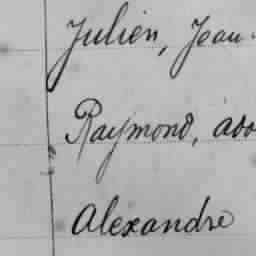 Julien, Jean
Raymond, ado
Alexandre